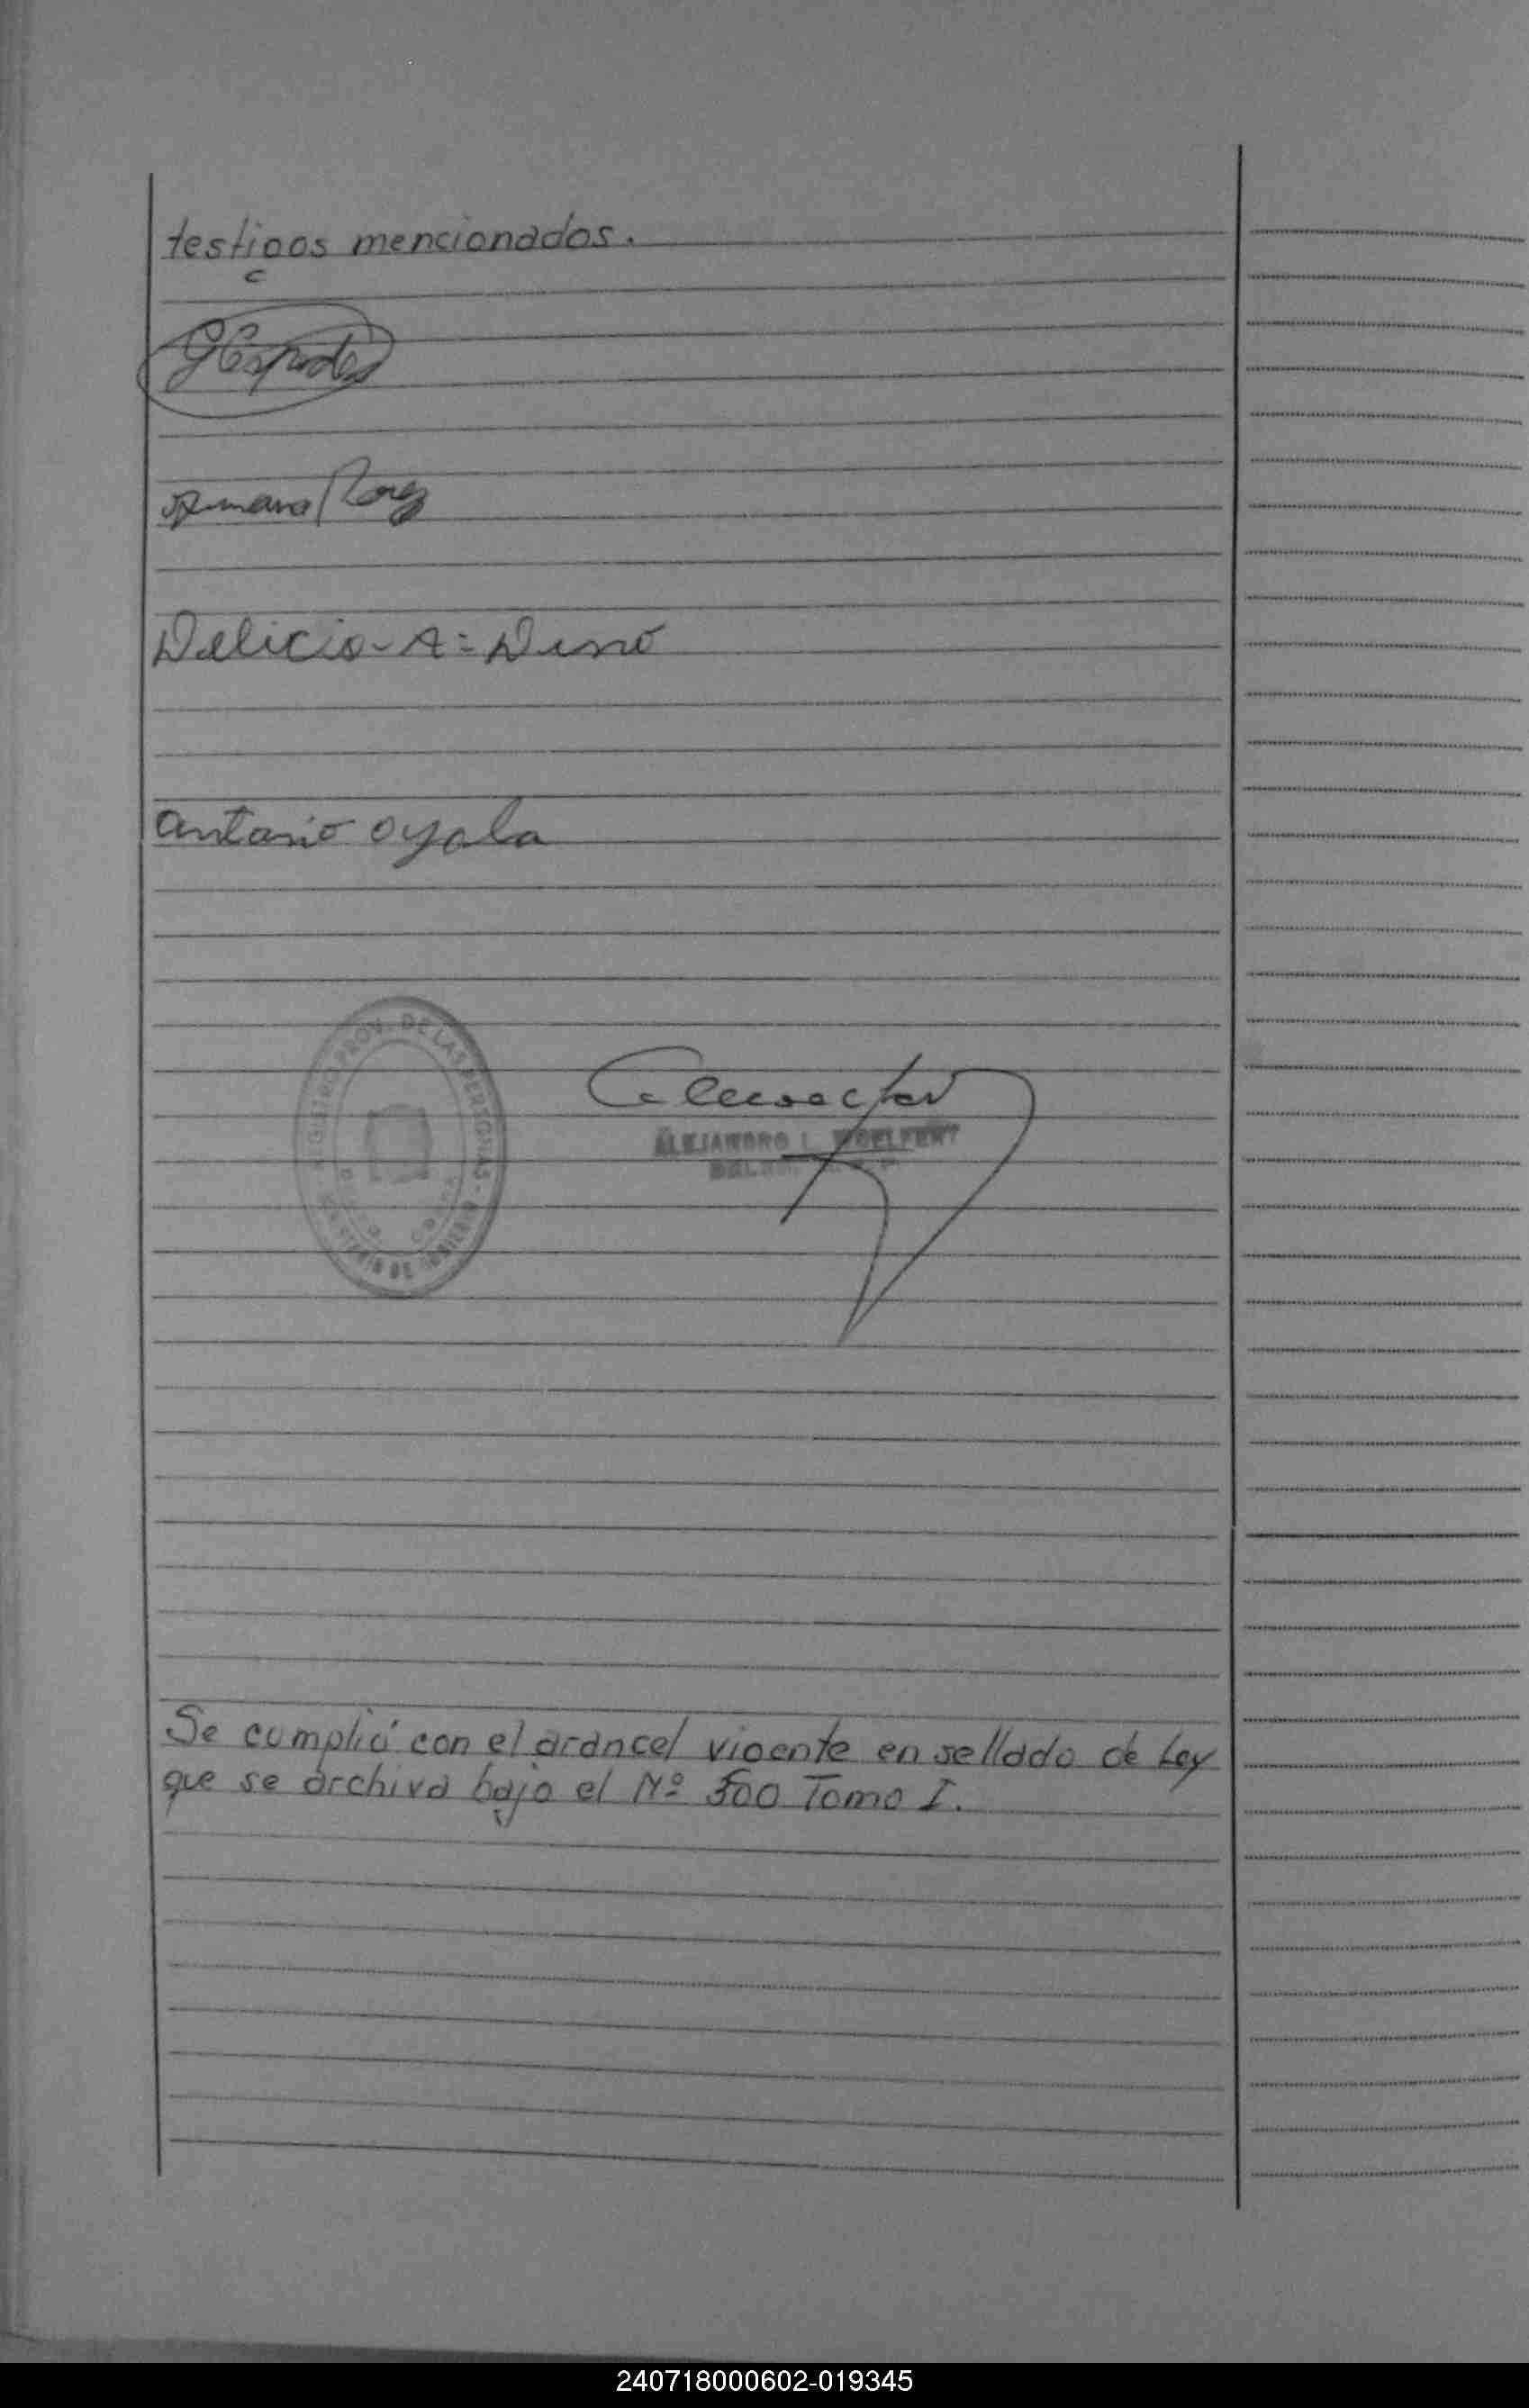 testigos mencionados.
Delicio - A = Dino
antonio oyala
REGISTRO PROV. DE LAS PERSONAS
ALEJANDRO L. WOELFERT
Se cumplió con el arancel vigente en sellado de Ley
que se archiva bajo el Nº 500 Tomo I.
240718000602-019345